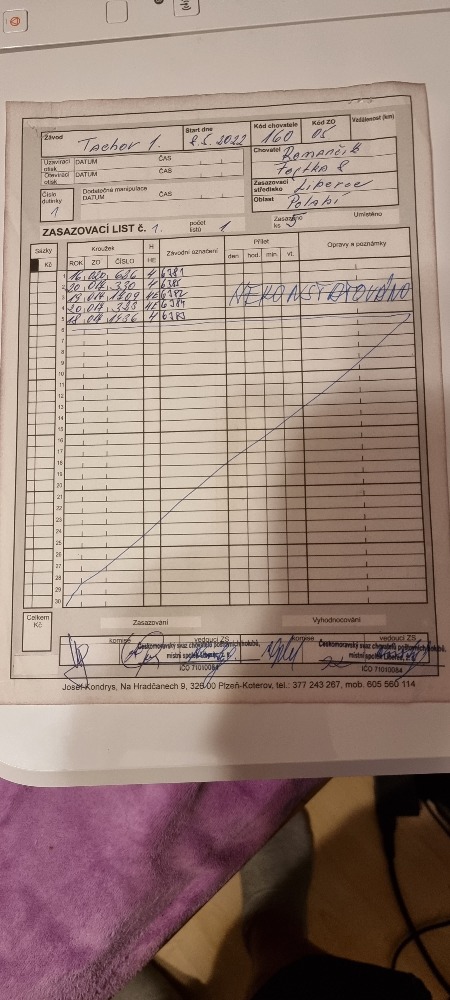 Závod Tachov 1. Start dne 8.5.2022 Kód chovatele 160 Kód ZO 05 Vzdálenost (km)
Uzavírací otisk DATUM ČAS
Otevírací otisk DATUM ČAS
Chovatel Romančík
Fojtka 8
Číslo dutinky 1 Dodatečná manipulace DATUM ČAS
Zasazovací středisko Liberec
Oblast Polabí
ZASAZOVACÍ LIST č. 1. počet listů 1 Zasazeno ks 5 Umístěno
Sázky Kč Kroužek H HE Závodní označení Přílet Opravy a poznámky
ROK ZO ČÍSLO den hod. min. vt.
1 16 020 636 H 6381
2 20 014 330 H 6385
3 19 014 1709 HE 6382 NEKONSTATOVÁNO
4 20 014 333 HE 6384
5 18 014 1436 H 6383
6
7
8
9
10
11
12
13
14
15
16
17
18
19
20
21
22
23
24
25
26
27
28
29
30
Celkem Kč Zasazování Vyhodnocování
komise vedoucí ZS komise vedoucí ZS
Českomoravský svaz chovatelů poštovních holubů, Českomoravský svaz chovatelů poštovních holubů,
místní spolek Liberec místní spolek
IČO 71010084 IČO 71010084
Josef Kondrys, Na Hradčanech 9, 326 00 Plzeň-Koterov, tel.: 377 243 267, mob. 605 560 114